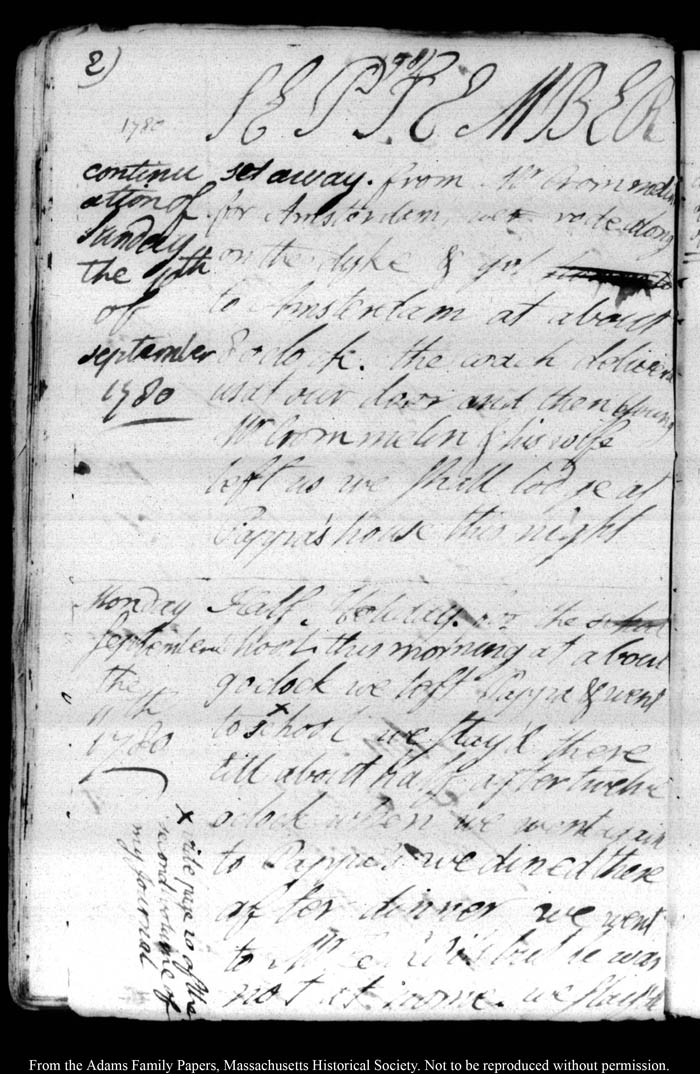 2)
1780
SEPTEMBER
1780
continu
ation of
Sunday
the 10th
of
september
1780
set away. from Mr Crommelin
for Amsterdam, we rode along
on the dyke & got
to Amsterdam at about
8 oclock. the coach deliverd
us at our door and then young
Mr Crommelin & his wife
left us we shall lodge at
Pappa's house this night
Monday
September
the
11th
1780
Half Holiday. at the
school this morning at about
9 oclock we left Pappa & went
to X school we stay'd there
till about half after twelve
oclock when we went again
to Pappa's we dined there
after dinner we went
to Mr but he was
not at home. we stay'd
X vide page 20 of the
second volume of
my Journal
From the Adams Family Papers, Massachusetts Historical Society. Not to be reproduced without permission.